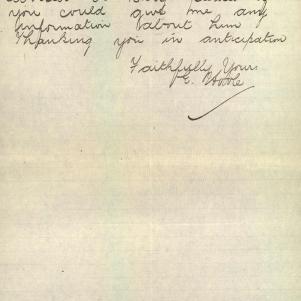 you could give me any
information about him
Thanking you in anticipation
Faithfully Yours
E.